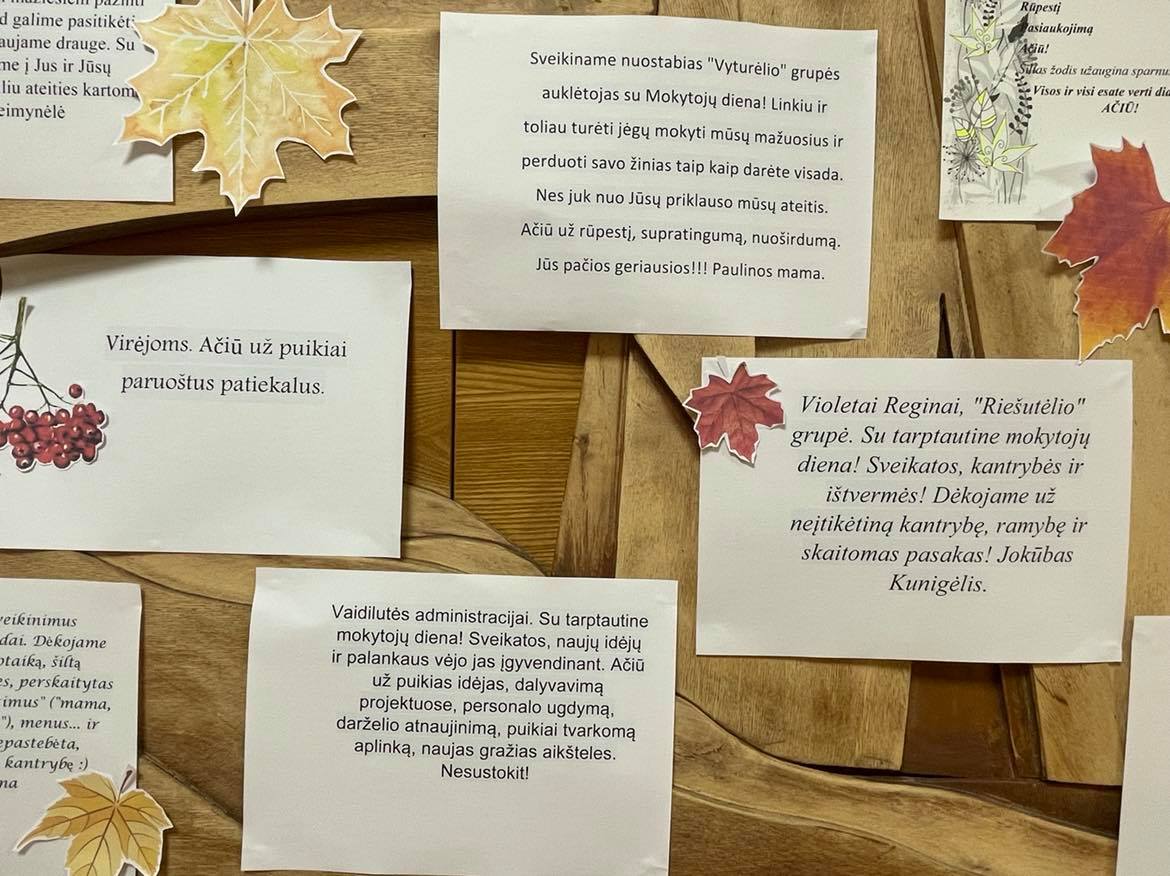 pažinti
d galime pasitikėti
aujame drauge. Su
me į Jus ir Jūsų
liu ateities kartom
eimynėlė
Sveikiname nuostabias "Vyturėlio" grupės
auklėtojas su Mokytojų diena! Linkiu ir
toliau turėti jėgų mokyti mūsų mažuosius ir
perduoti savo žinias taip kaip darėte visada.
Nes juk nuo Jūsų priklauso mūsų ateitis.
Ačiū už rūpestį, supratingumą, nuoširdumą.
Jūs pačios geriausios!!! Paulinos mama.
Rūpestį
Pasiaukojimą
Ačiū!
Šiltas žodis užaugina sparnus
Visos ir visi esate verti did
AČIŪ!
Virėjoms. Ačiū už puikiai
paruoštus patiekalus.
Violetai Reginai, "Riešutėlio"
grupė. Su tarptautine mokytojų
diena! Sveikatos, kantrybės ir
ištvermės! Dėkojame už
neįtikėtiną kantrybę, ramybę ir
skaitomas pasakas! Jokūbas
Kunigėlis.
veikinimus
dai. Dėkojame
otaiką, šiltą
es, perskaitytas
imus" ("mama,
"), menus... ir
epastebėta,
kantrybę :)
na
Vaidilutės administracijai. Su tarptautine
mokytojų diena! Sveikatos, naujų idėjų
ir palankaus vėjo jas įgyvendinant. Ačiū
už puikias idėjas, dalyvavimą
projektuose, personalo ugdymą,
darželio atnaujinimą, puikiai tvarkomą
aplinką, naujas gražias aikšteles.
Nesustokit!